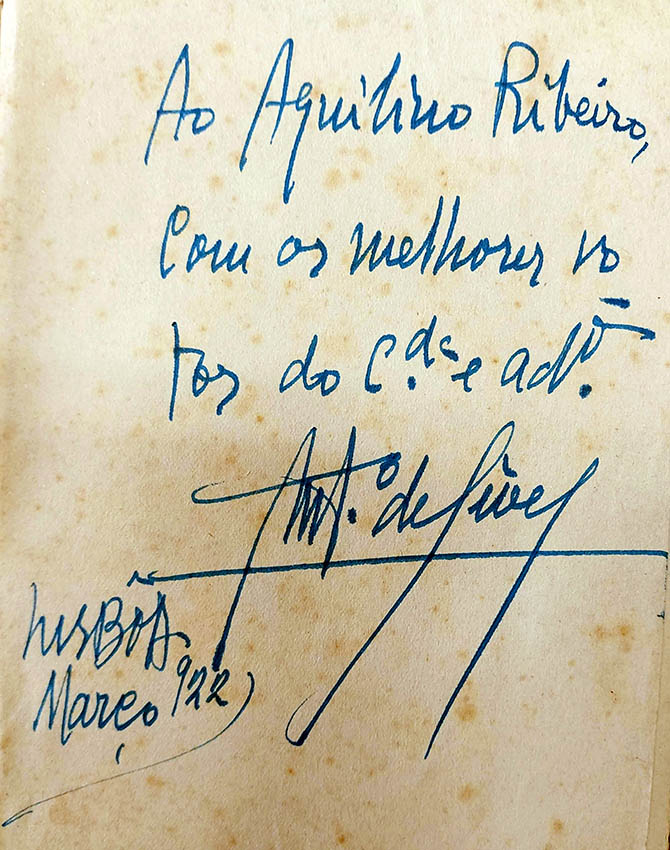 Ao Aquilino Ribeiro,
Com os melhores vo
tos do C.da e ad.or
Ant.º de
LISBÔA
Março 922